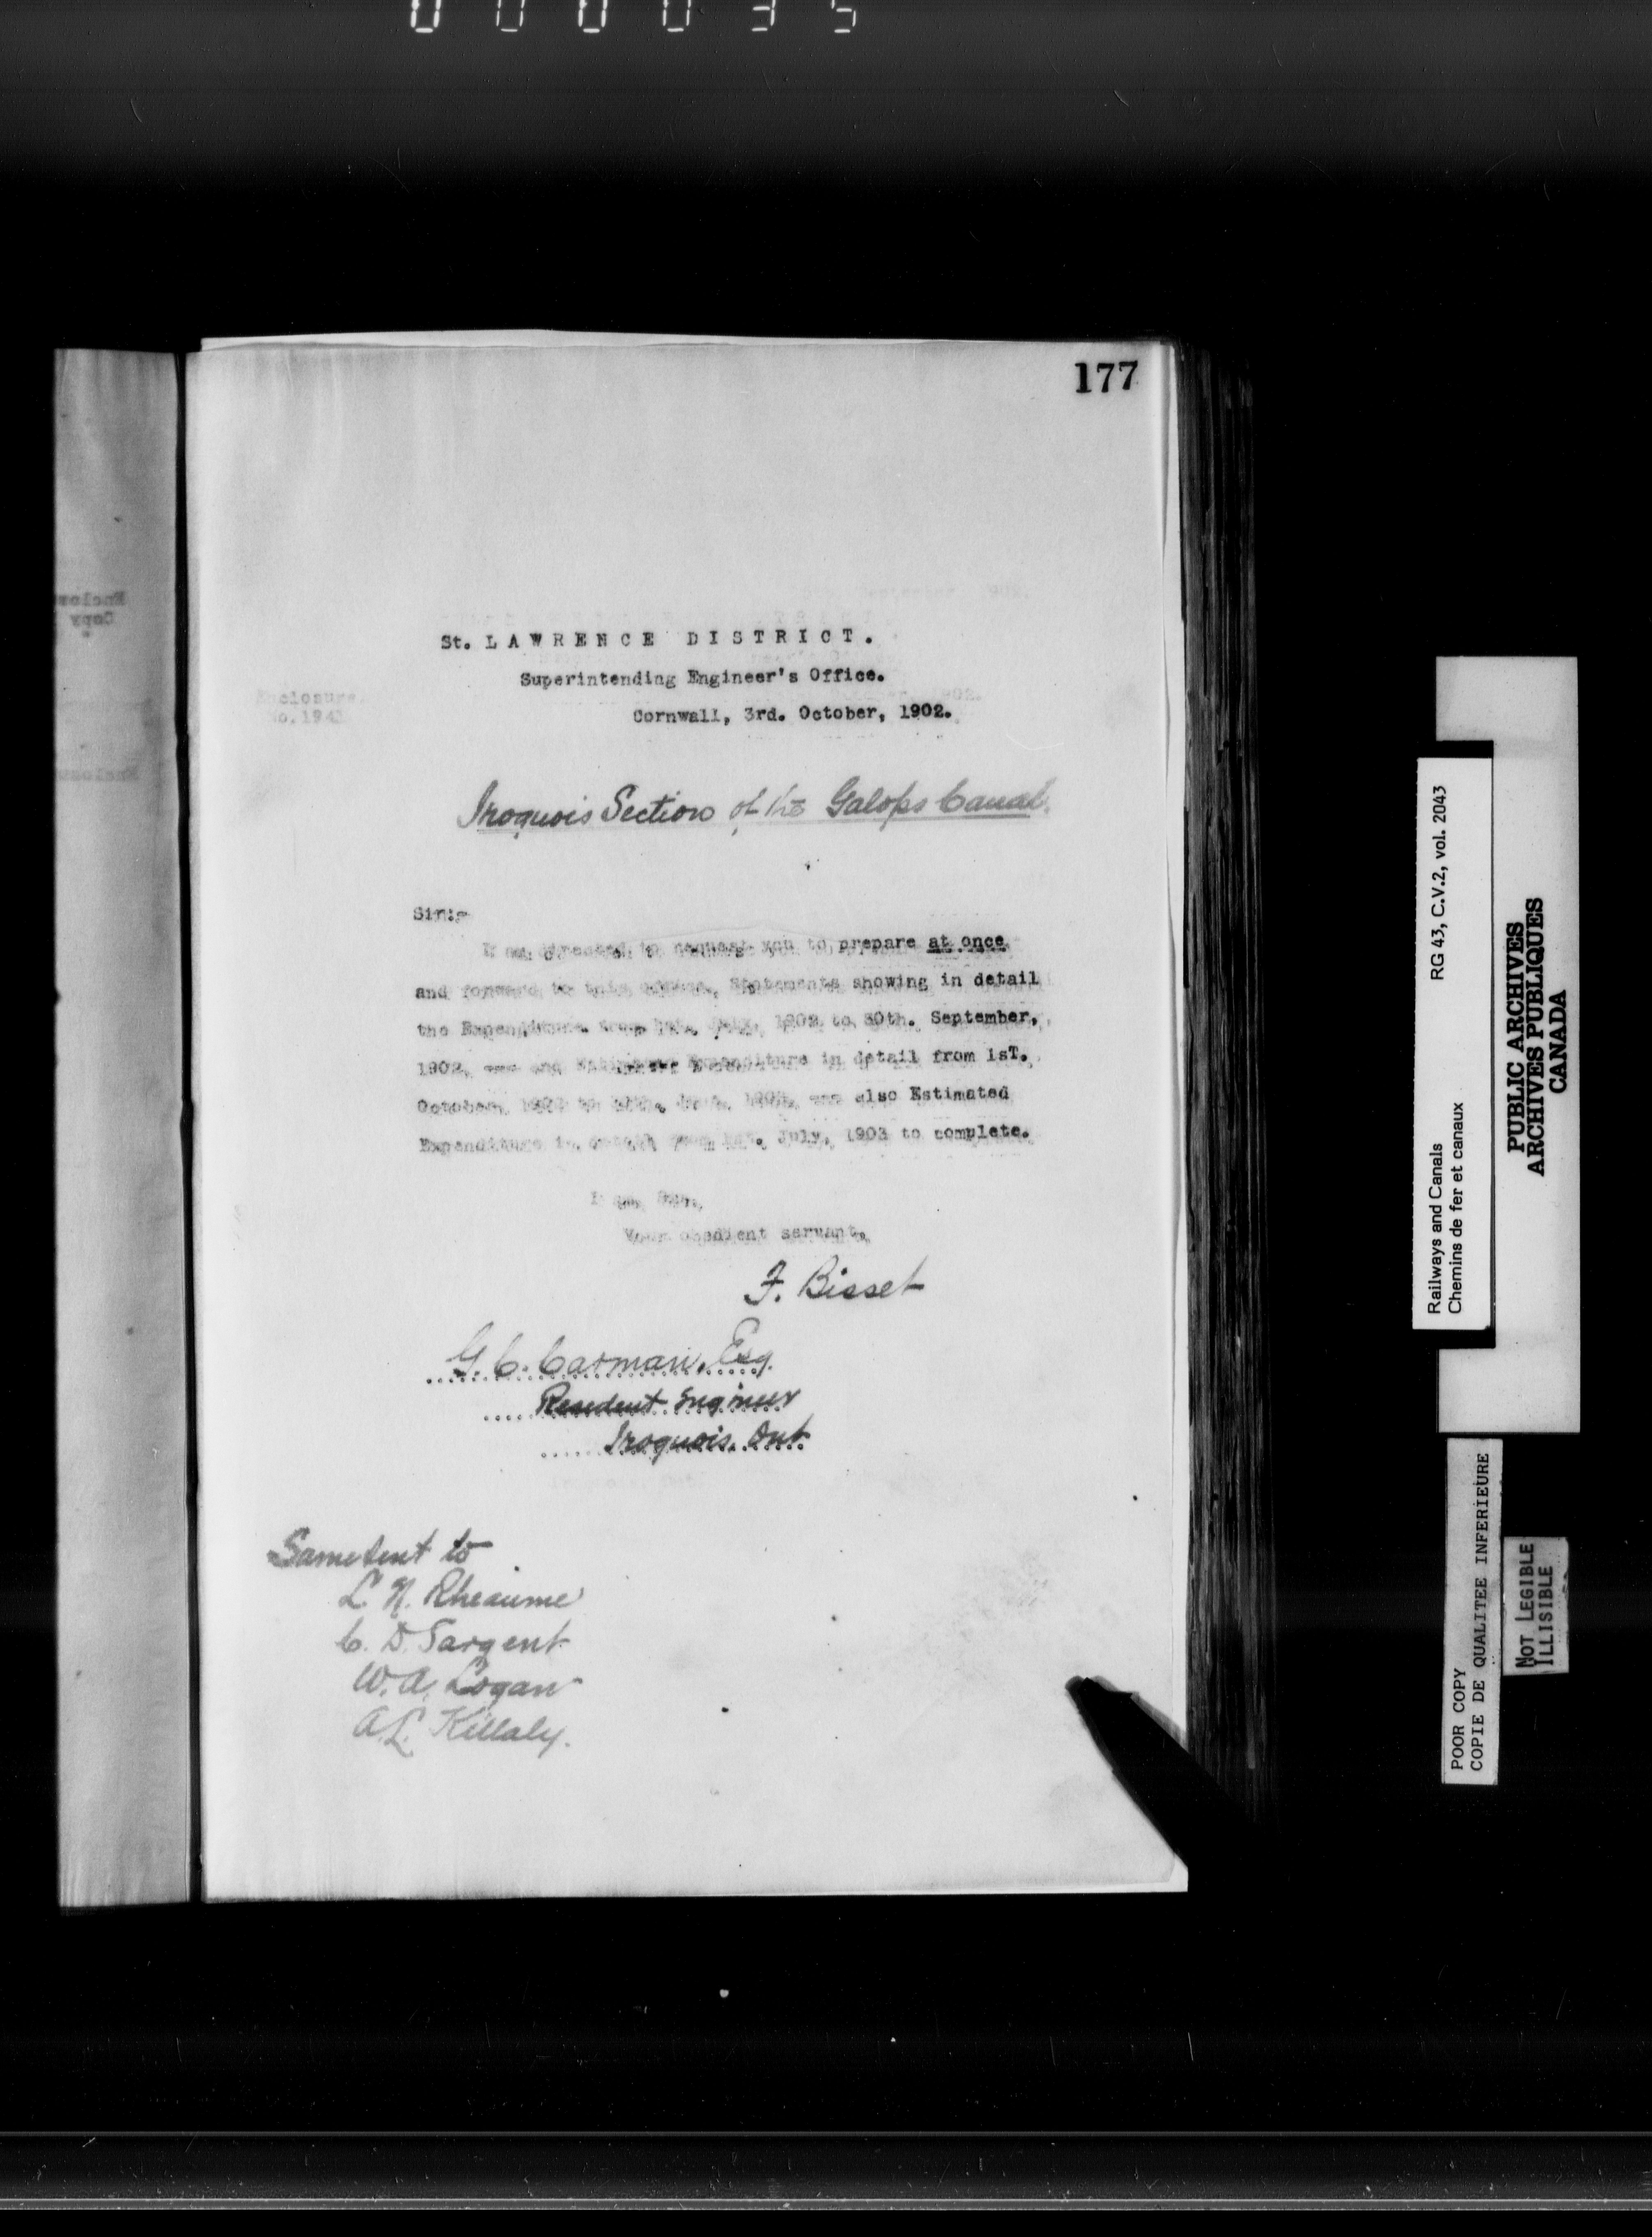 000035
177
St. LAWRENCE DISTRICT.
Superintending Engineer's Office.
Cornwall, 3rd. October, 1902.
Iroquois Section of the Galops Canal.
Sir:-
I am directed to request you to prepare at once
and forward to this office, Statements showing in detail
the Expenditure from 1st. July, 1902 to 30th. September,
1902, and Estimated Expenditure in detail from 1sT.
October, 1902 to 30th. June, 1903, also Estimated
Expenditure in detail from 1st. July, 1903 to complete.
I am, Sir,
Your obedient servant,
F. Bisset
G. C. Carman, Esq.
Resident Engineer
Iroquois. Ont
Same sent to
L. N. Rheaume
C. D. Sargent
W. A. Logan
A. L. Killaly.
Railways and Canals RG 43, C.V.2, vol. 2043
Chemins de fer et canaux
PUBLIC ARCHIVES
ARCHIVES PUBLIQUES
CANADA
POOR COPY
COPIE DE QUALITEE INFERIEURE
NOT LEGIBLE
ILLISIBLE